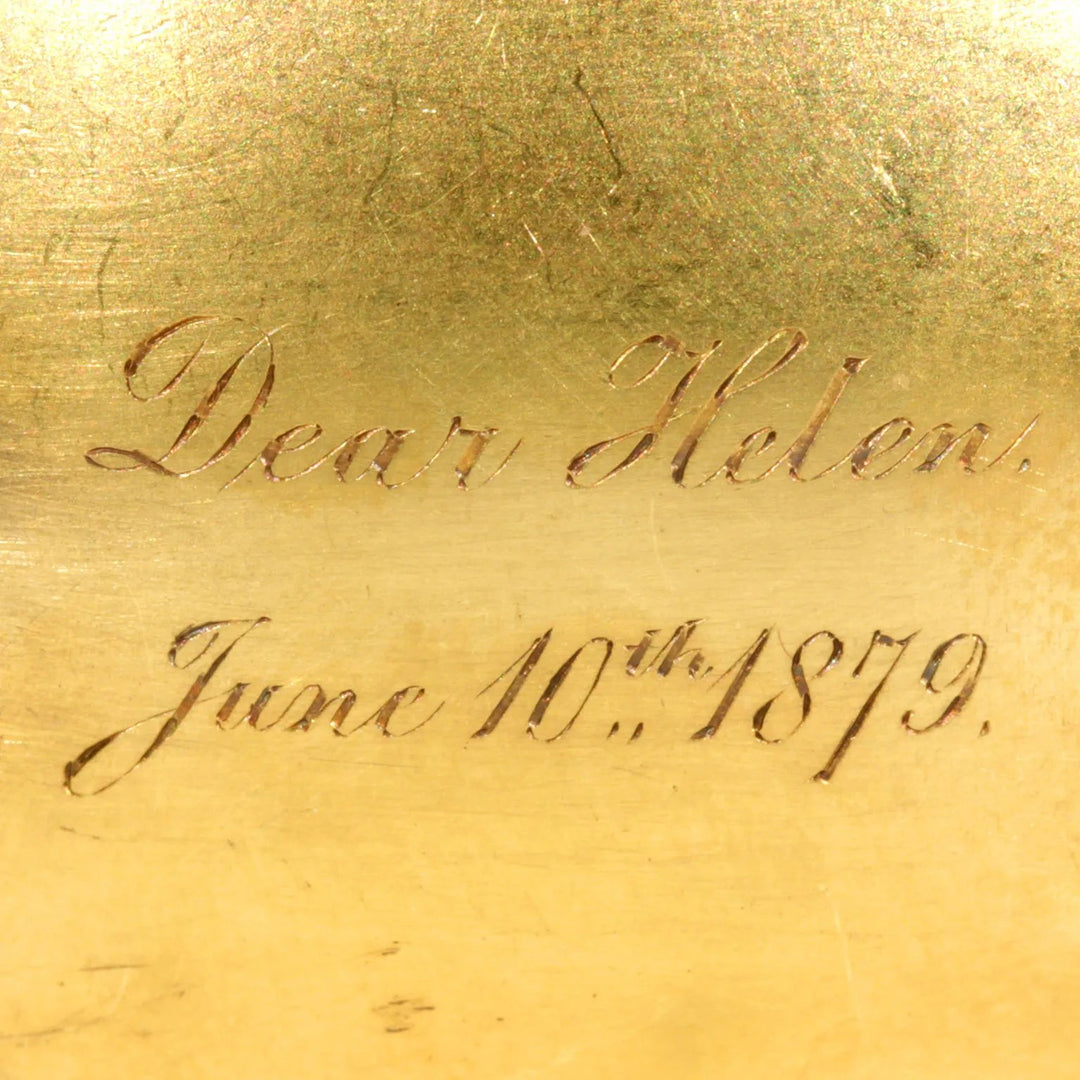 Dear Helen.
June 10th. 1879.